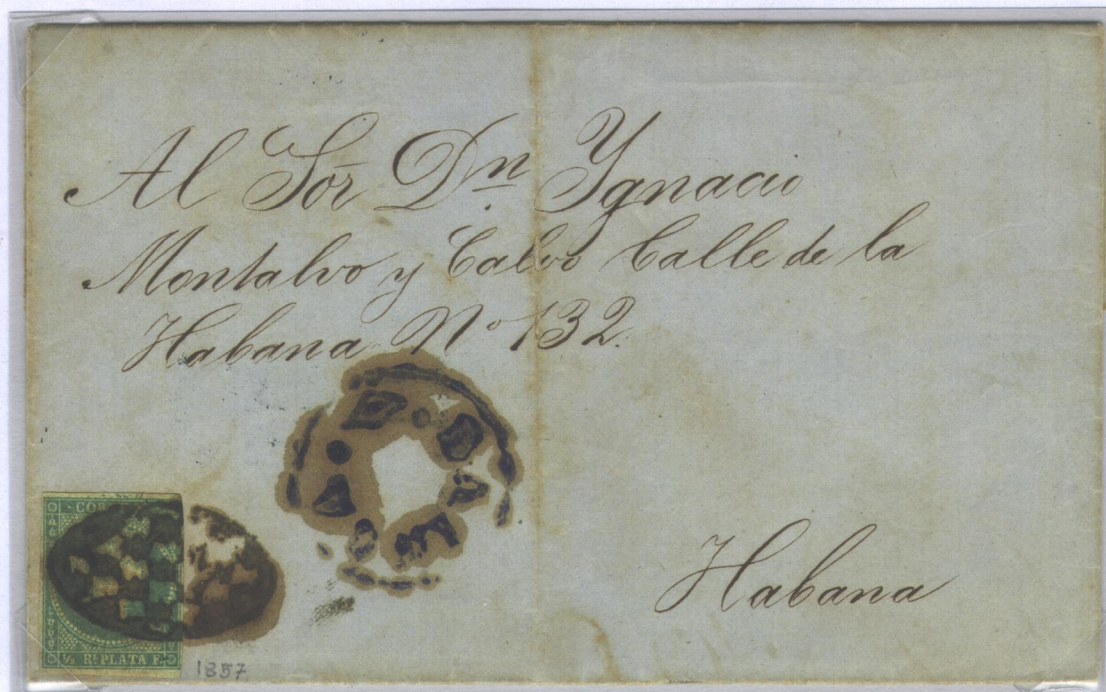 Al Sor Dn Ygnacio
Montalvo y Calvo Calle de la
Habana No 132.
Habana
COR
½ Rl PLATA F.
1857